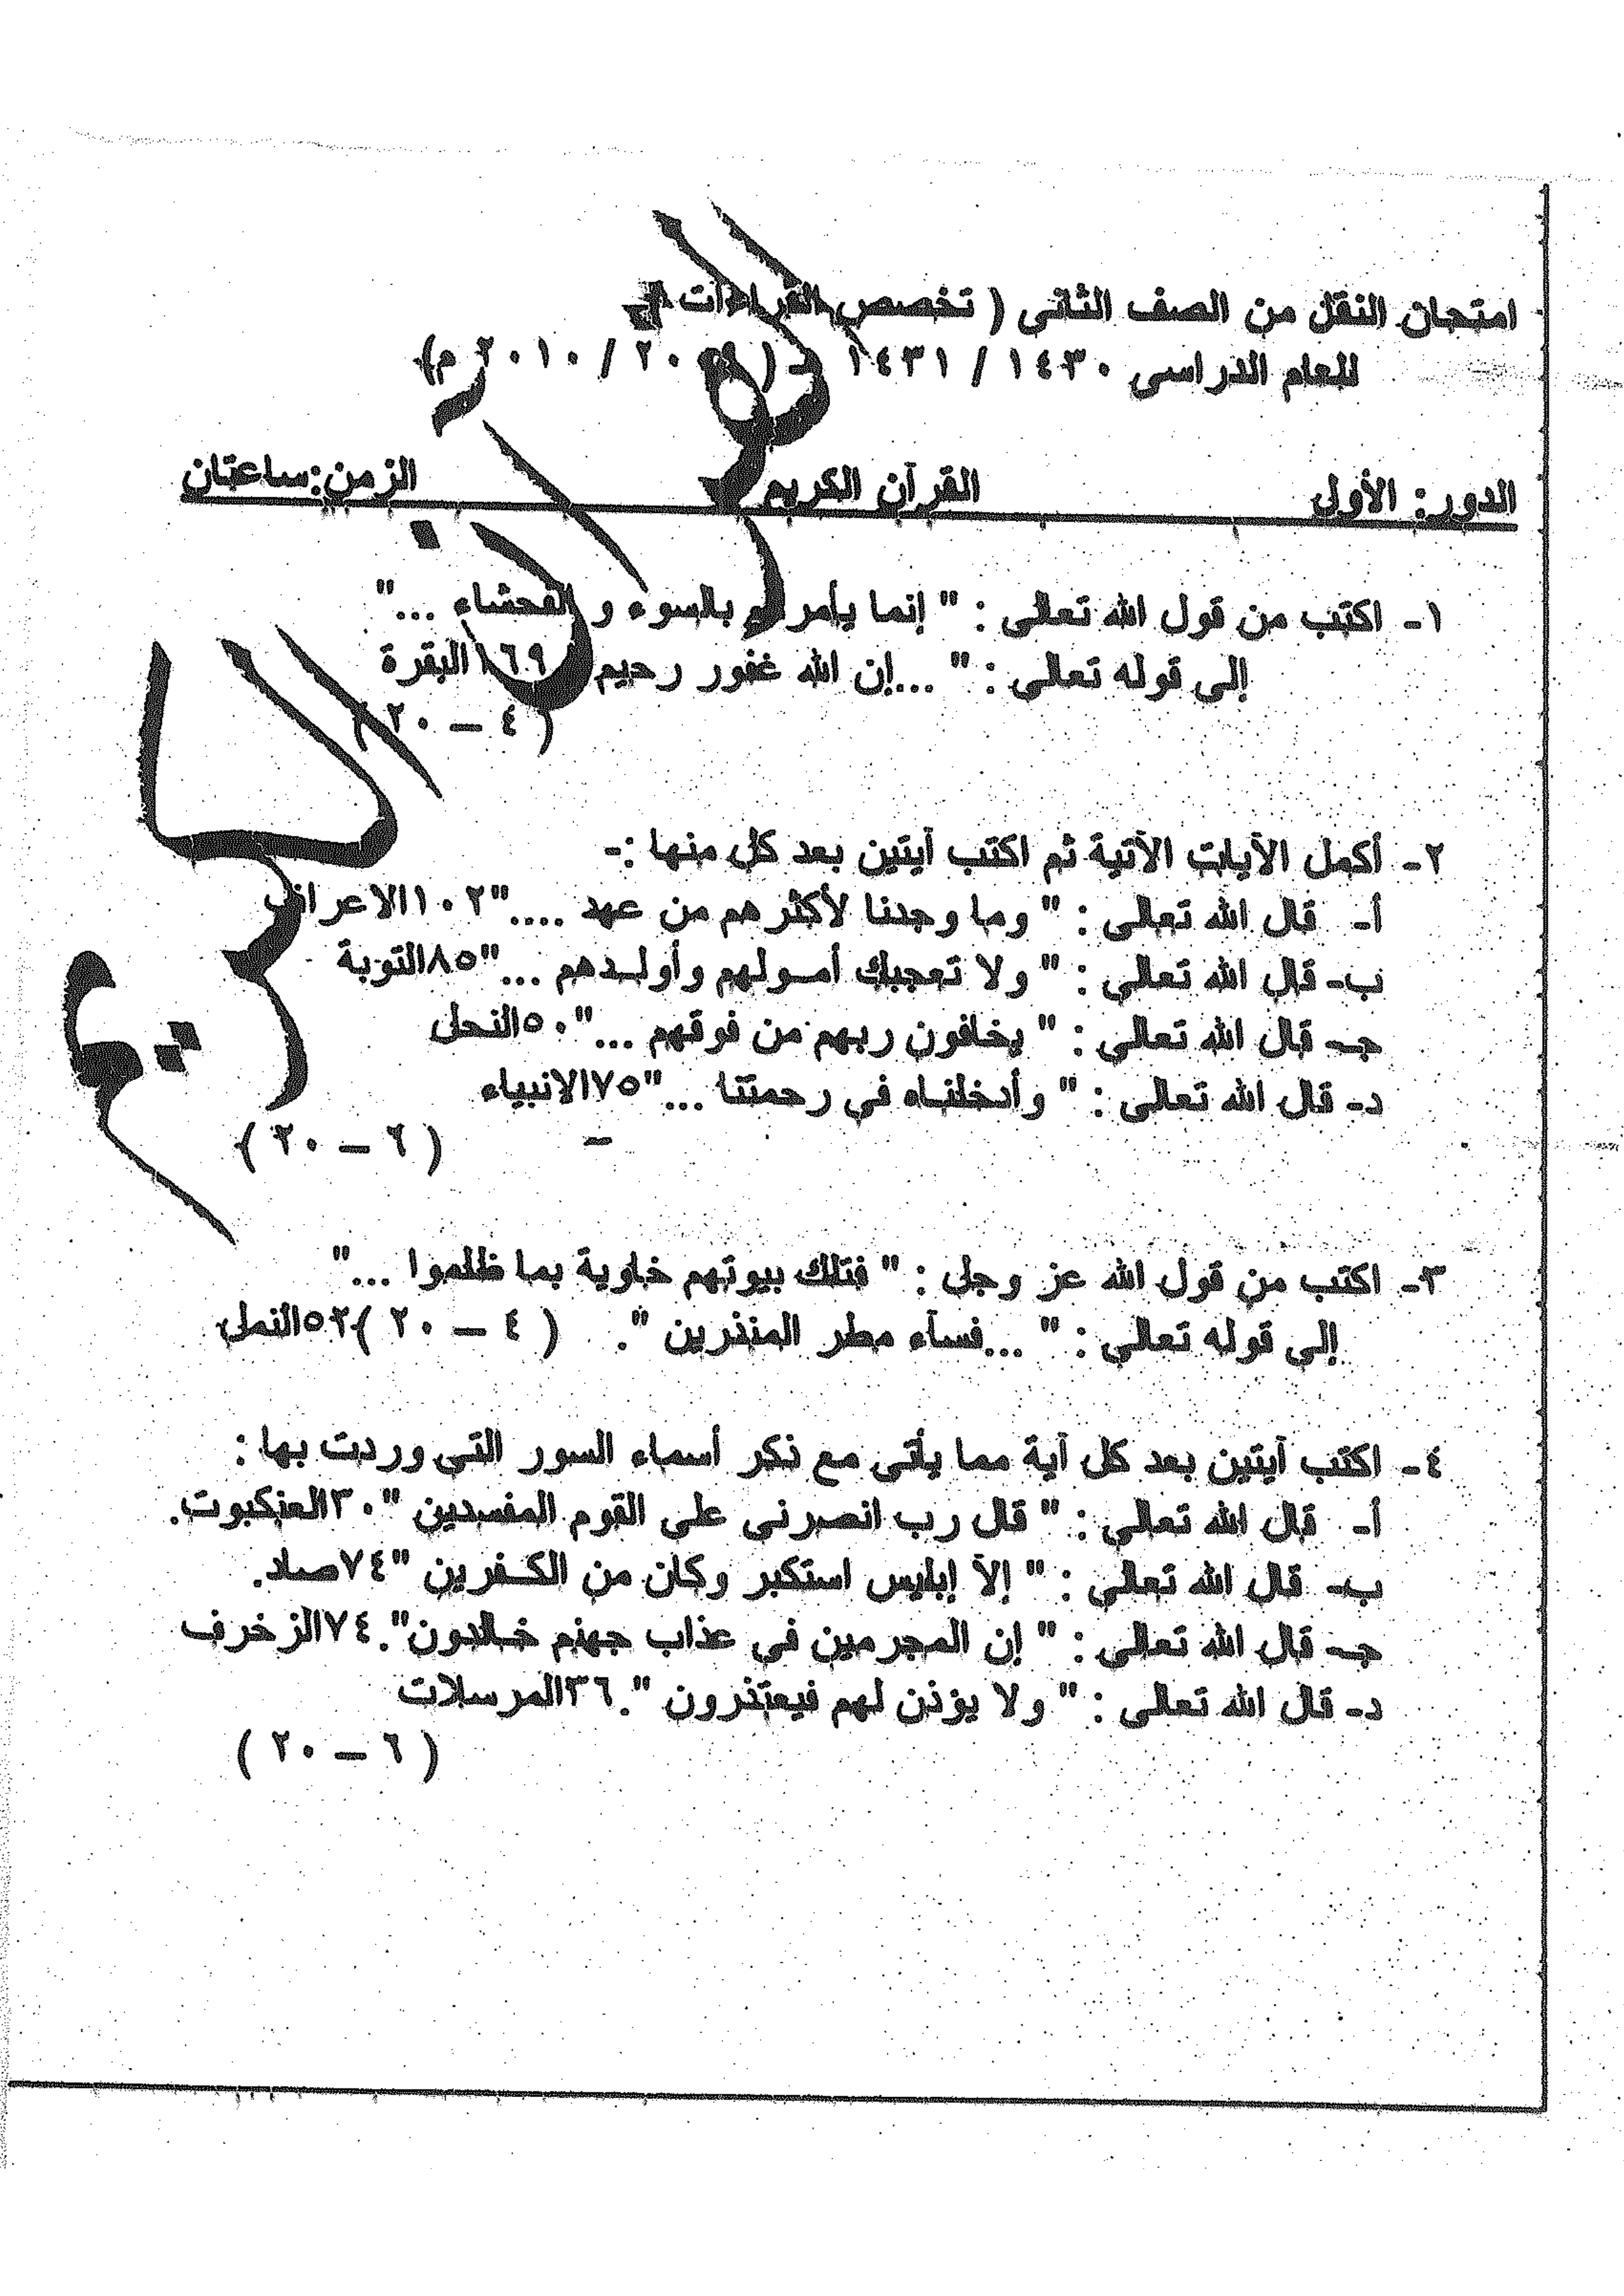 امتحان النقل من الصف الثانى ( تخصص القراءات )
للعام الدراسى ١٤٣٠ / ١٤٣١ هـ ( ٢٠٠٩ / ٢٠١٠ م)
الدور: الأول القرآن الكريم الزمن:ساعتان
١- اكتب من قول الله تعالى : " إنما يأمركم بالسوء و الفحشاء ..."
إلى قوله تعالى : " ...إن الله غفور رحيم" ١٦٩البقرة
( ٤ – ٢٠ )
٢- أكمل الآيات الآتية ثم اكتب آيتين بعد كل منها :-
أ- قال الله تعالى : " وما وجدنا لأكثرهم من عهد ...."١٠٢الاعراف
ب- قال الله تعالى : " ولا تعجبك أمـولهم وأولـدهم ..."٨٥التوبة
جـ- قال الله تعالى : " يخافون ربهم من فوقهم ..."٥٠النحل
د- قال الله تعالى : " وأدخلنـاه في رحمتنا ..."٧٥الانبياء
( ٦ – ٢٠ ) –
٣- اكتب من قول الله عز وجل : " فتلك بيوتهم خاوية بما ظلموا ..."
إلى قوله تعالى : " ...فسآء مطر المنذرين ". ( ٤ – ٢٠ )٥٢النمل
٤- اكتب آيتين بعد كل آية مما يأتى مع ذكر أسماء السور التى وردت بها :
أ- قال الله تعالى : " قال رب انصرنى على القوم المفسدين "٣٠العنكبوت.
ب- قال الله تعالى : " إلآ إبليس استكبر وكان من الكـفرين "٧٤صاد.
جـ- قال الله تعالى : " إن المجرمين في عذاب جهنم خـالدون".٧٤الزخرف
د- قال الله تعالى : " ولا يؤذن لهم فيعتذرون ".٣٦المرسلات
( ٦ – ٢٠ )
القرآن الكريم